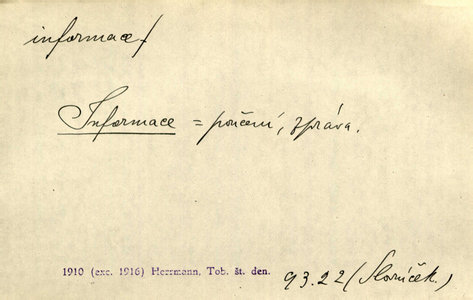 informace/
Informace = poučení, zpráva.
1910 (exc. 1916) Herrmann, Tob. št. den.
93.22 (Slovníček.)